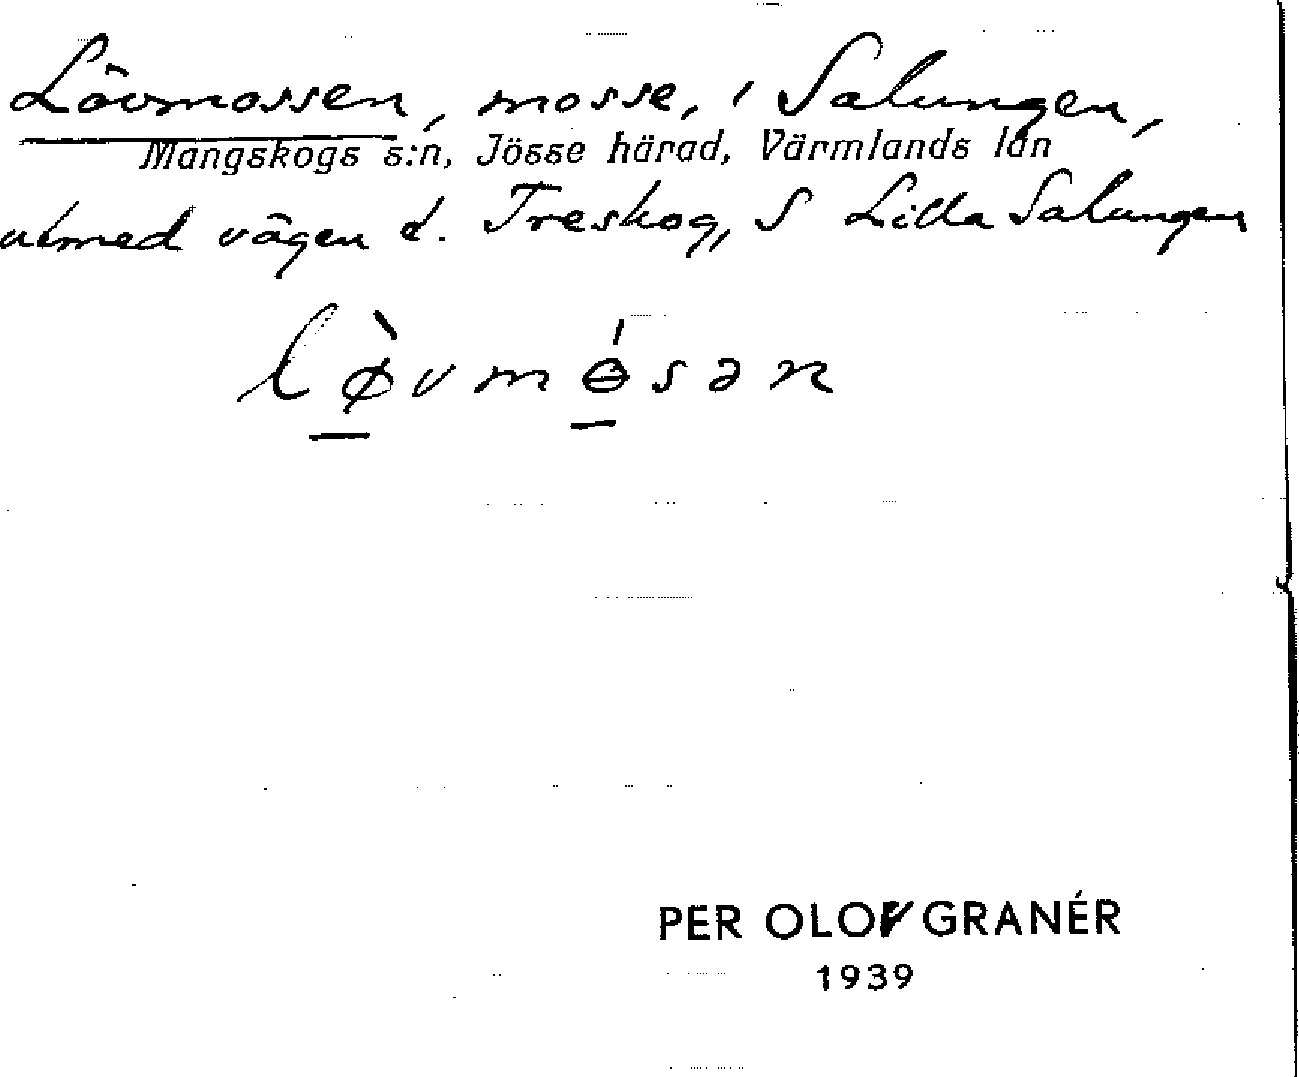 Lövmossen, mosse, i Salungen,
Mangskogs s:n, Jösse härad, Värmlands län
utmed vägen t. Treskog, S Lilla Salungen
lø̀vmɵ́sən
PER OLOV GRANÉR
1939